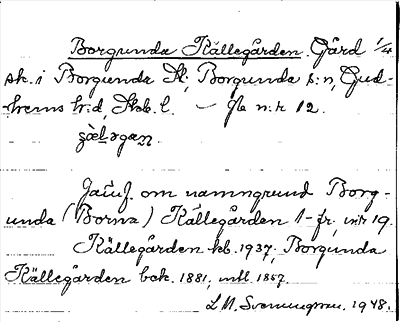 Borgunda Källegården. Gård 1/4
sk. i Borgunda Sk; Borgunda s:n, Gud-
hems h:d, Skab. l. – Gla n:r 12.
Jämf. om namngrund Borg-
unda (Borna) Källegården 1– fr. n:r 19.
Källegården kb. 1937; Borgunda
Källegården bok. 1881, mtl. 1857.
1948.